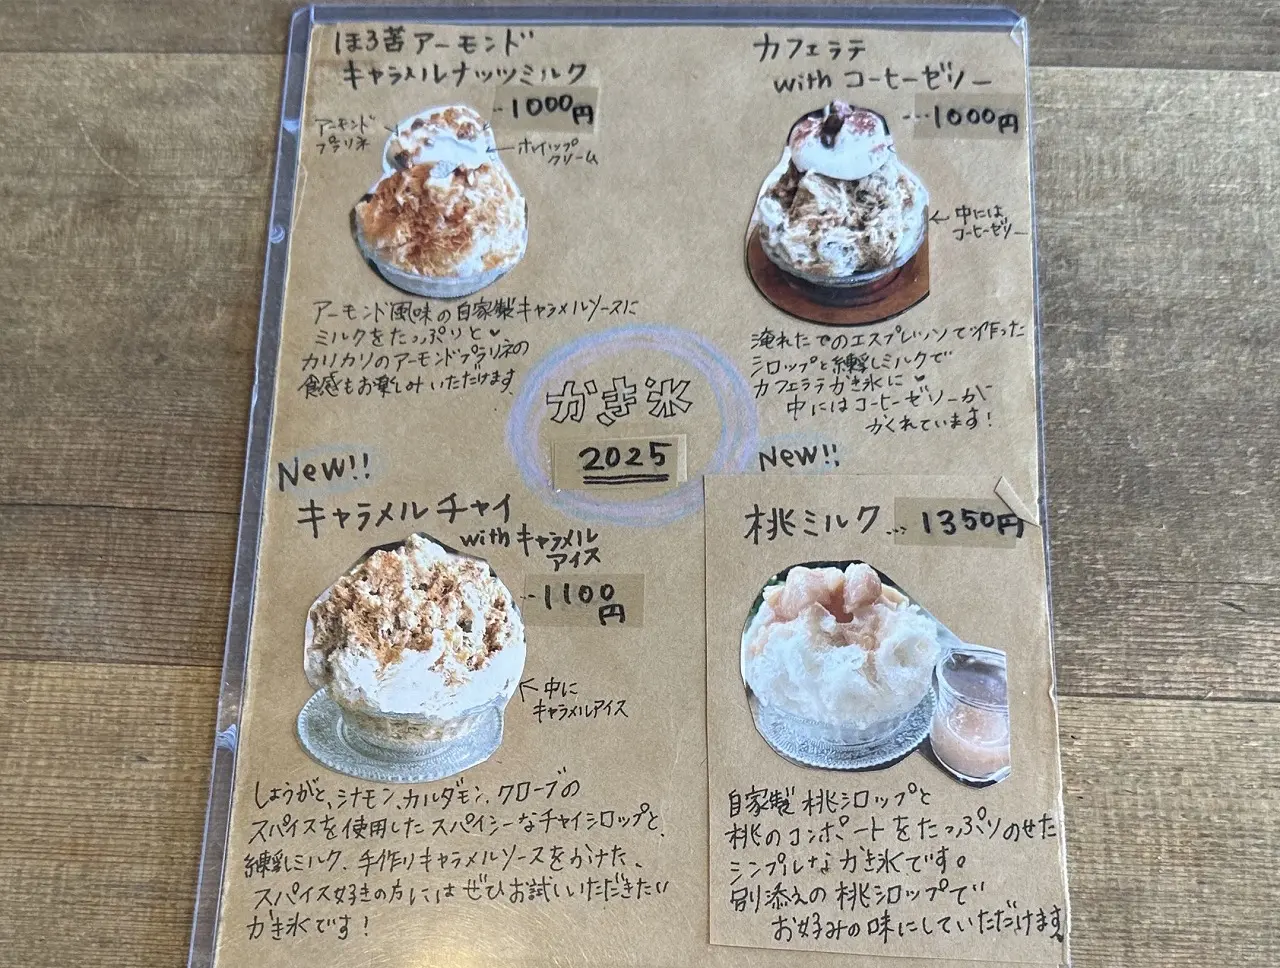 ほろ苦アーモンド
キャラメルナッツミルク
…1000円
アーモンド
プラリネ
ホイップ
クリーム
アーモンド風味の自家製キャラメルソースに
ミルクをたっぷりと♥
カリカリのアーモンドプラリネの
食感もお楽しみいただけます
カフェラテ
with コーヒーゼリー
…1000円
←中には
コーヒーゼリー
淹れたてのエスプレッソで作った
シロップと練乳ミルクで
カフェラテかき氷に♥
中にはコーヒーゼリーが
かくれています!
かき氷
2025
New!!
キャラメルチャイ
with キャラメル
アイス
…1100
円
←中に
キャラメルアイス
しょうがと、シナモン、カルダモン、クローブの
スパイスを使用したスパイシーなチャイシロップと、
練乳ミルク、手作りキャラメルソースをかけた、
スパイス好きの方にはぜひお試しいただきたい
かき氷です!
New!!
桃ミルク…1350円
自家製桃シロップと
桃のコンポートをたっぷりのせた
シンプルなかき氷です。
別添えの桃シロップで
お好みの味にしていただけます。